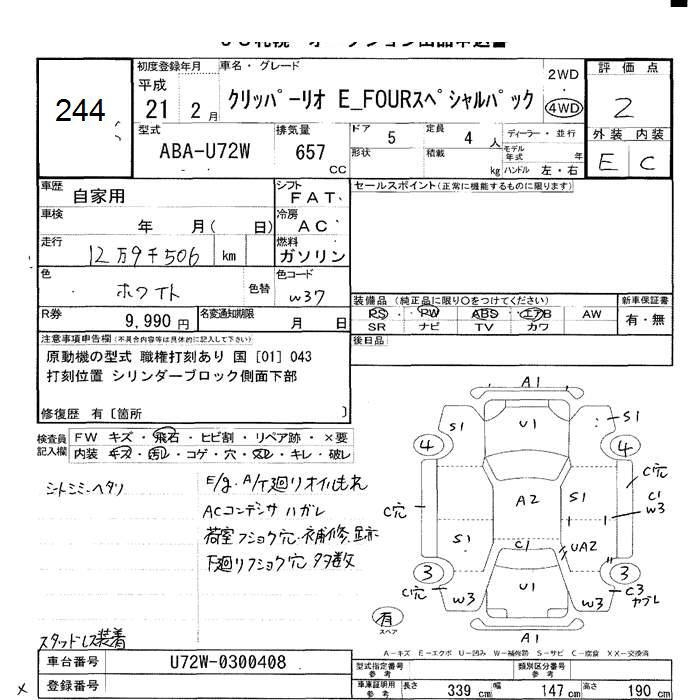 244
初度登録年月 車名・グレード
平成
21 2月 クリッパーリオ E_FOURスペシャルパック
2WD
4WD
評価点
2
外装 内装
E C
型式 排気量 ドア 定員 ディーラー・並行
ABA-U72W 657 CC 5 4人
形状 積載 kg モデル年式 年
ハンドル 左・右
車歴 自家用 シフト FAT
車検 年 月( 日) 冷房 AC
走行 12万9千506 km 燃料 ガソリン
色 ホワイト 色替 色コード W37
R券 9,990円 名変通知期限 月 日
セールスポイント(正常に機能するものに限ります)
装備品 (純正品に限り○をつけてください) 新車保証書
PS PW ABS エアB AW 有・無
SR ナビ TV カワ
後日品
注意事項申告欄(不具合内容等は具体的に記入して下さい)
原動機の型式 職権打刻あり 国 [01] 043
打刻位置 シリンダーブロック側面下部
修復歴 有〔箇所 〕
検査員記入欄
FW キズ・飛石・ヒビ割・リペア跡・×要
内装 キズ・汚レ・コゲ・穴・スレ・キレ・破レ
シートシミ・ヘタリ
E/g. A/T廻りオイルもれ
ACコンデンサ ハガレ
荷室フショク穴・補修跡
下廻りフショク穴多数
スタッドレス装着
A1
U1
S1 S1
4 4
C穴
C1
W3
A2 S1
C穴
S1 C1 UA2
3 3
C穴
W3 U1 W3
C3
カブレ
A1
有
スペア
A-キズ E-エクボ U-凹み W-補修跡 S-サビ C-腐食 XX-交換済
車台番号 U72W-0300408
登録番号
型式指定番号 参考 類別区分番号 参考
車庫証明用 参考 長さ 339cm 幅 147cm 高さ 190cm